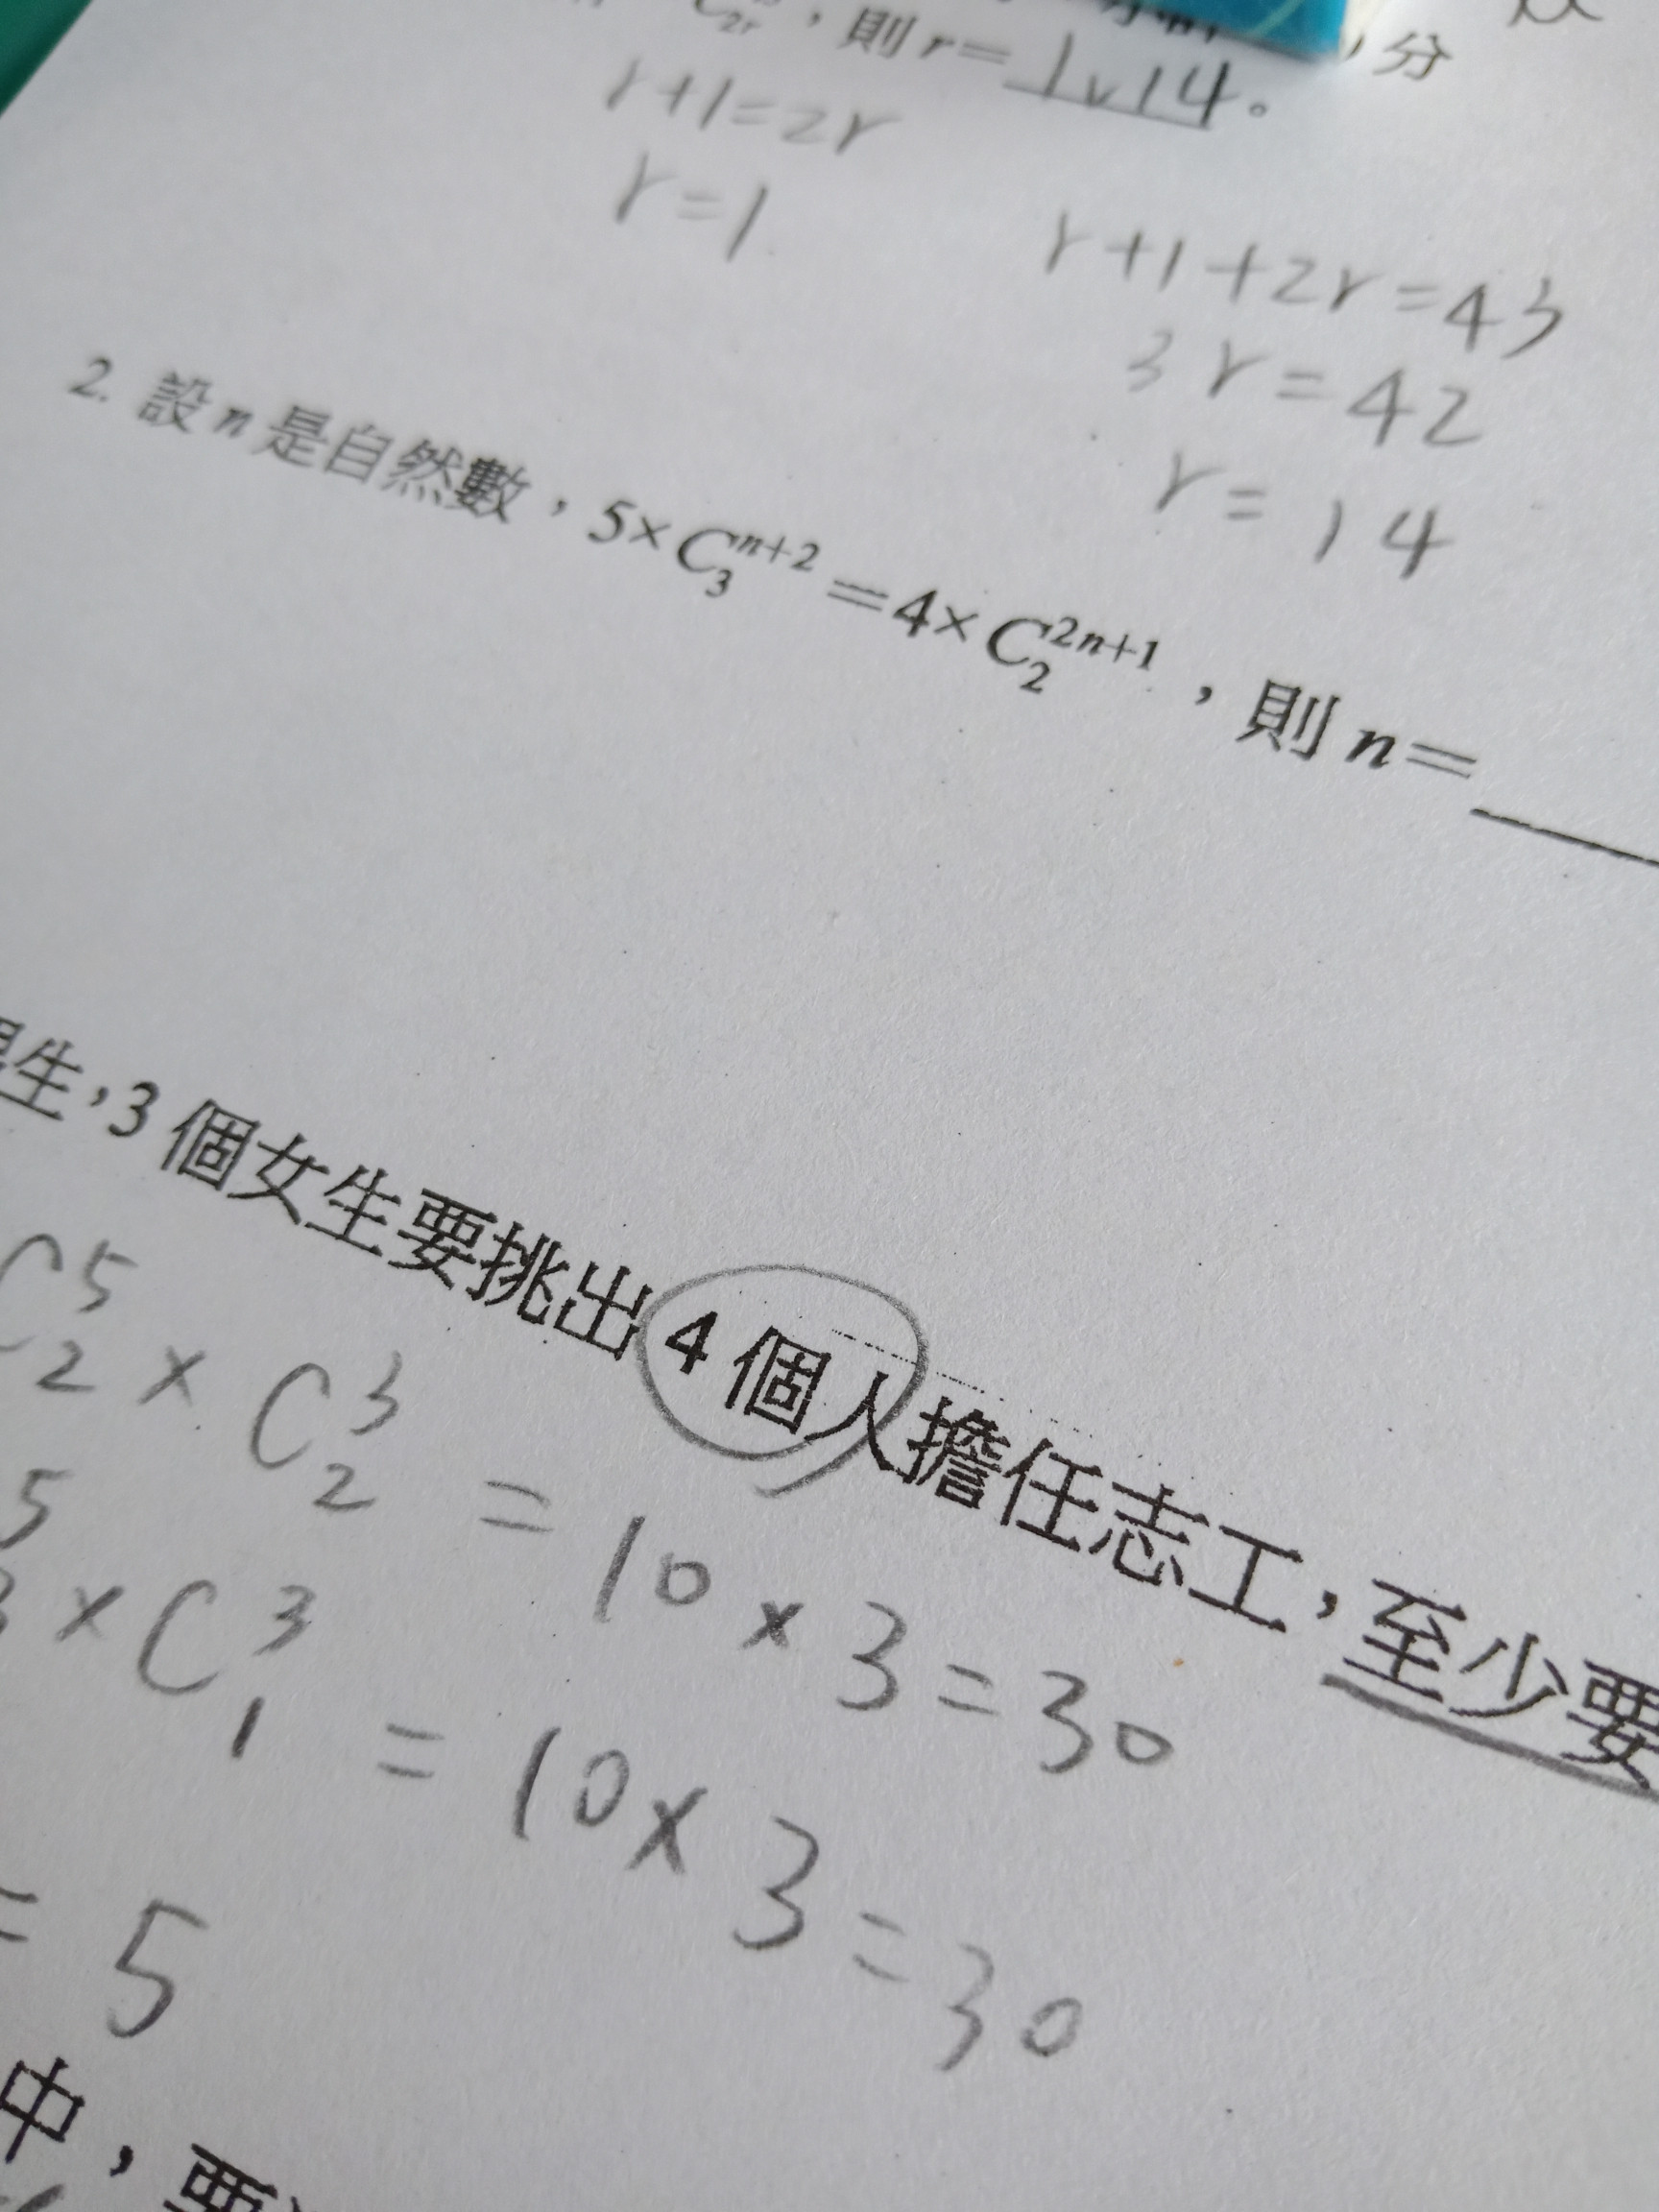 C_{2r}，則 r= 1,14。
分
r+1=2r
r=1
r+1+2r=43
3r=42
r=14
2. 設 n 是自然數，5×C_3^{n+2}=4×C_2^{2n+1}，則 n=
生，3 個女生要挑出 4 個人擔任志工，至少要
C_2^5 × C_2^3 = 10×3=30
5 × C_1^3 = 10×3=30
= 5
中，要